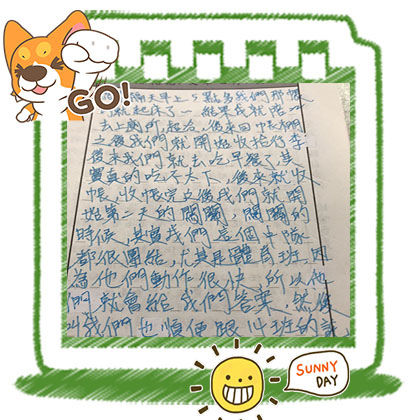 GO!
隔天早上5點多我們那帳
就起床了,結果我就陪
去上廁所 後來回帳棚
之後我們就開始收拾行李
後來我們就去吃早餐了其
實真的吃不太下,後來就收
帳,收帳完之後我們就開
始第二天的闖關,闖關的
時候,其實我們這個中隊
都很團結,尤其是體育班,因
為他們動作很快,所以他
們就會給我們答案,然後
叫我們也順便跟 班的
SUNNY
DAY